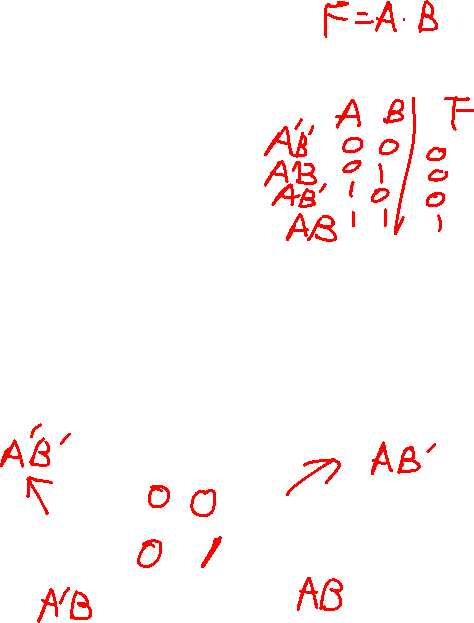 F=A·B
A B F
A'B' 0 0 0
A'B 0 1 0
AB' 1 0 0
AB 1 1 1
A'B' AB'
0 0
0 1
A'B AB